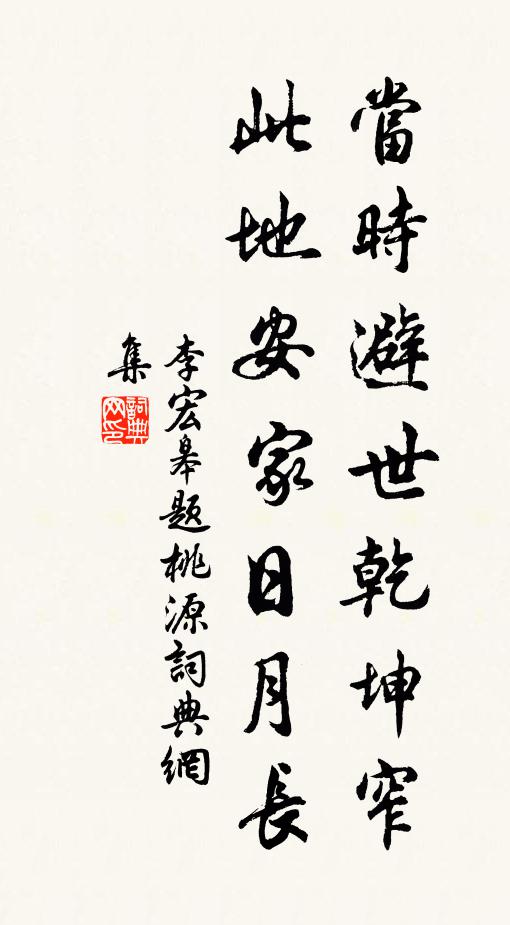 當時避世乾坤窄
此地安家日月長
李宏皋題桃源詞典網
集
詞典网印